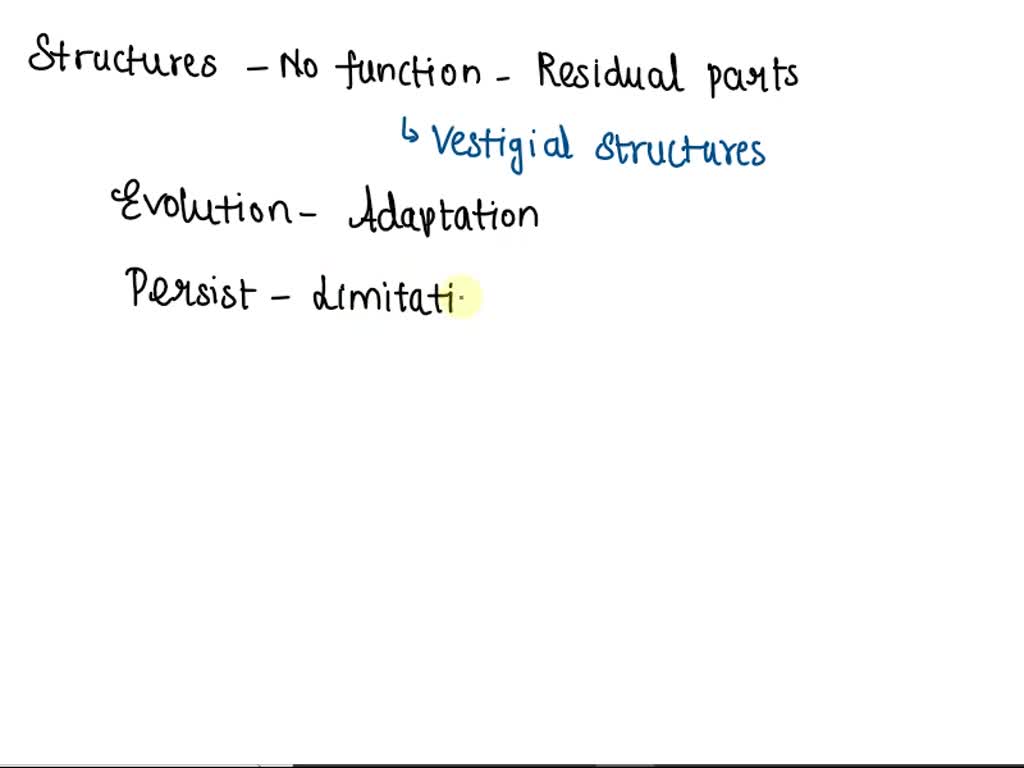 Structures - No function - Residual parts
↳ Vestigial structures
Evolution - Adaptation
Persist - Limitati